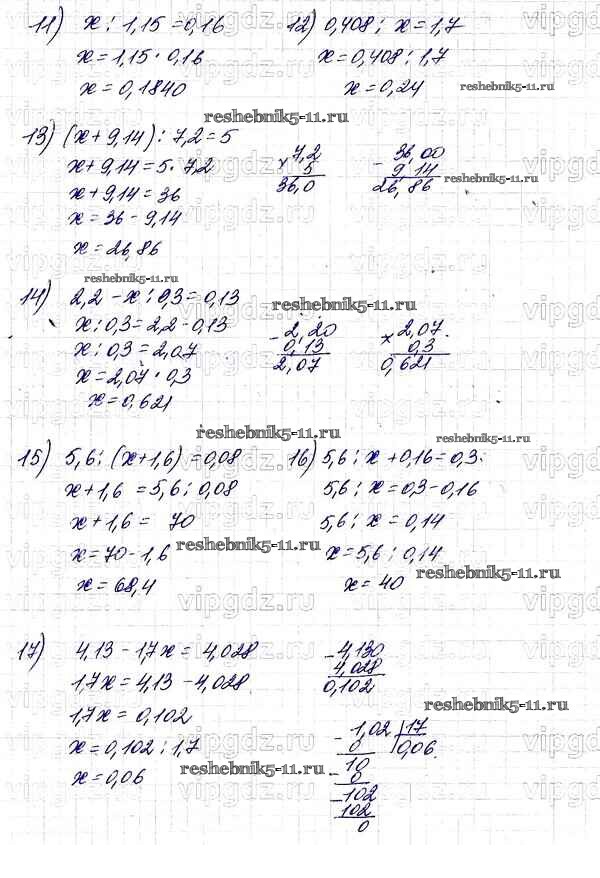 11) x : 1,15 = 0,16 12) 0,408 : x = 1,7
x = 1,15 · 0,16 x = 0,408 : 1,7
x = 0,1840 x = 0,24 reshebnik5-11.ru
reshebnik5-11.ru
13) (x + 9,14) : 7,2 = 5
x + 9,14 = 5 · 7,2 × 7,2 - 36,00
x + 9,14 = 36 5 9 14
x = 36 - 9,14 36,0 26,86 reshebnik5-11.ru
x = 26,86
reshebnik5-11.ru
14) 2,2 - x : 0,3 = 0,13 reshebnik5-11.ru
x : 0,3 = 2,2 - 0,13 - 2,20 × 2,07
x : 0,3 = 2,07 0,13 0,3
x = 2,07 · 0,3 2,07 0,621
x = 0,621
reshebnik5-11.ru
reshebnik5-11.ru
15) 5,6 : (x + 1,6) = 0,08 16) 5,6 : x + 0,16 = 0,3
x + 1,6 = 5,6 : 0,08 5,6 : x = 0,3 - 0,16
x + 1,6 = 70 5,6 : x = 0,14
x = 70 - 1,6 reshebnik5-11.ru x = 5,6 : 0,14
x = 68,4 x = 40 reshebnik5-11.ru
17) 4,13 - 1,7x = 4,028 - 4,130
1,7x = 4,13 - 4,028 4,028
1,7x = 0,102 0,102
reshebnik5-11.ru
x = 0,102 : 1,7 - 1,02 17
x = 0,06 reshebnik5-11.ru 0 0,06
10
- 0
- 102
102
0
vipgdz.ru